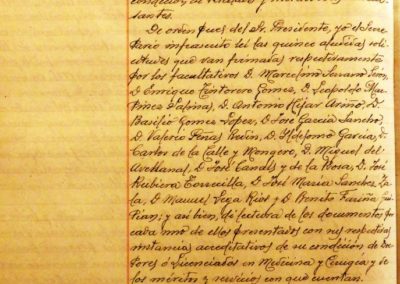 santes.
De orden pues del Sr. Presidente, yo el Secre
tario infrascrito leí las quince aludidas soli
citudes que van firmadas respectivamente
por los facultativos D. Marcelino Serrano
D. Enrique Cantorero Gomez, D. Leopoldo Mar
tinez Salina, D. Antonio Hijar Ariño, D.
Basilio Gomez Lopez, D. José Garcia Sancho,
D. Valerio Peñas D. Ildefonso Garcia, D.
Carlos de la Calle y Mongero, D. Miguel del
Avellanal, D. José Canals y de la Rosa, D. José
Rubiera Torrecilla, D. José Maria Sanchez La
la, D. Manuel Vega Rios y D. Benito Fariña
y así bien, di lectura de los documentos que
cada uno de ellos presentados con sus respectivas
instancia acreditativos de su condición de Doc
tores ó Licenciados en Medicina y Cirugia y de
los méritos y servicios con que cuentan.